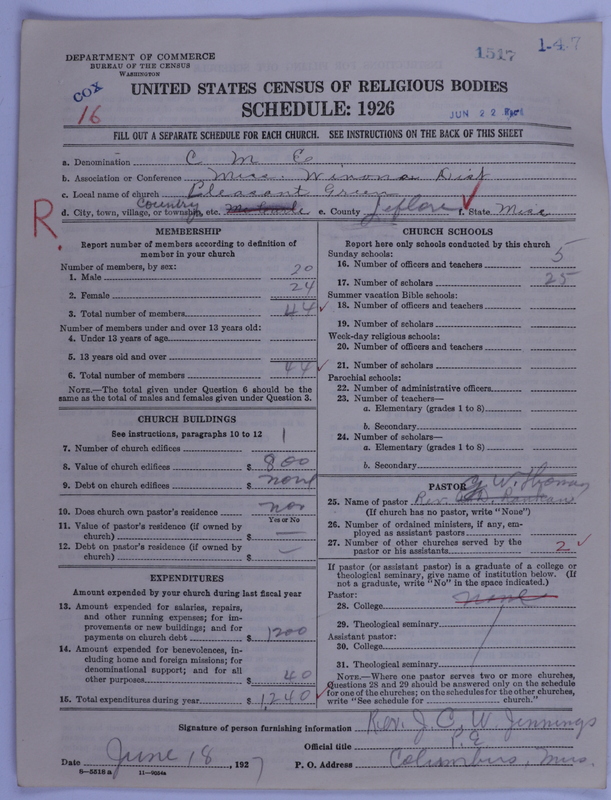 1517 1-4-7
DEPARTMENT OF COMMERCE
BUREAU OF THE CENSUS
WASHINGTON
COX
16
UNITED STATES CENSUS OF RELIGIOUS BODIES
SCHEDULE: 1926
JUN 22
FILL OUT A SEPARATE SCHEDULE FOR EACH CHURCH. SEE INSTRUCTIONS ON THE BACK OF THIS SHEET
a. Denomination C M E
b. Association or Conference Miss. Winona Dist
c. Local name of church Pleasant Green
d. City, town, village, or township, etc. Country e. County Leflore f. State Miss
R.
MEMBERSHIP
Report number of members according to definition of
member in your church
Number of members, by sex:
1. Male 20
2. Female 24
3. Total number of members 44
Number of members under and over 13 years old:
4. Under 13 years of age
5. 13 years old and over
6. Total number of members 44
NOTE.—The total given under Question 6 should be the
same as the total of males and females given under Question 3.
CHURCH BUILDINGS
See instructions, paragraphs 10 to 12
7. Number of church edifices 1
8. Value of church edifices $ 800
9. Debt on church edifices $ none
10. Does church own pastor's residence no
Yes or No
11. Value of pastor's residence (if owned by
church) $ —
12. Debt on pastor's residence (if owned by
church) $ —
EXPENDITURES
Amount expended by your church during last fiscal year
13. Amount expended for salaries, repairs,
and other running expenses; for im-
provements or new buildings; and for
payments on church debt $ 1200
14. Amount expended for benevolences, in-
cluding home and foreign missions; for
denominational support; and for all
other purposes $ 40
15. Total expenditures during year $ 1,240
CHURCH SCHOOLS
Report here only schools conducted by this church
Sunday schools:
16. Number of officers and teachers 5
17. Number of scholars 25
Summer vacation Bible schools:
18. Number of officers and teachers
19. Number of scholars
Week-day religious schools:
20. Number of officers and teachers
21. Number of scholars
Parochial schools:
22. Number of administrative officers
23. Number of teachers—
a. Elementary (grades 1 to 8)
b. Secondary
24. Number of scholars—
a. Elementary (grades 1 to 8)
b. Secondary
PASTOR
W. Thomas
25. Name of pastor Rev.
(If church has no pastor, write "None")
26. Number of ordained ministers, if any, em-
ployed as assistant pastors
27. Number of other churches served by the
pastor or his assistants 2
If pastor (or assistant pastor) is a graduate of a college or
theological seminary, give name of institution below. (If
not a graduate, write "No" in the space indicated.)
Pastor:
28. College none
29. Theological seminary
Assistant pastor:
30. College
31. Theological seminary
NOTE.—Where one pastor serves two or more churches,
Questions 28 and 29 should be answered only on the schedule
for one of the churches; on the schedules for the other churches,
write "See schedule for church."
Signature of person furnishing information Rev. J. C. W. Jennings
Official title P. E
Date June 18, 1927 P. O. Address Columbus, Miss.
8—5518 a 11—9054a